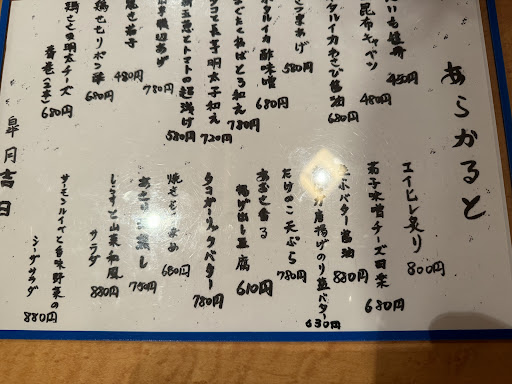 あらかると
いも唐揚
450円
昆布キャベツ
480円
タルイカわさび醤油
680円
さつまあげ
580円
タルイカ酢味噌
680円
とろろ和え
780円
長芋明太子和え
720円
新玉葱とトマトの超浅げ
580円
磯辺あげ
780円
茄子
480円
鶏せせりポン酢
680円
鶏ささみ明太チーズ
春巻(2本)
680円
エイヒレ炙り
800円
茄子味噌チーズ田楽
680円
バター醤油
880円
唐揚げのり塩バター
630円
たけのこ天ぷら
780円
揚げ出し豆腐
610円
タコガーリックバター
780円
680円
蒸し
780円
しらすと山菜和風
サラダ
880円
サーモンルイベと香味野菜の
シーザーサラダ
880円
皐月吉日